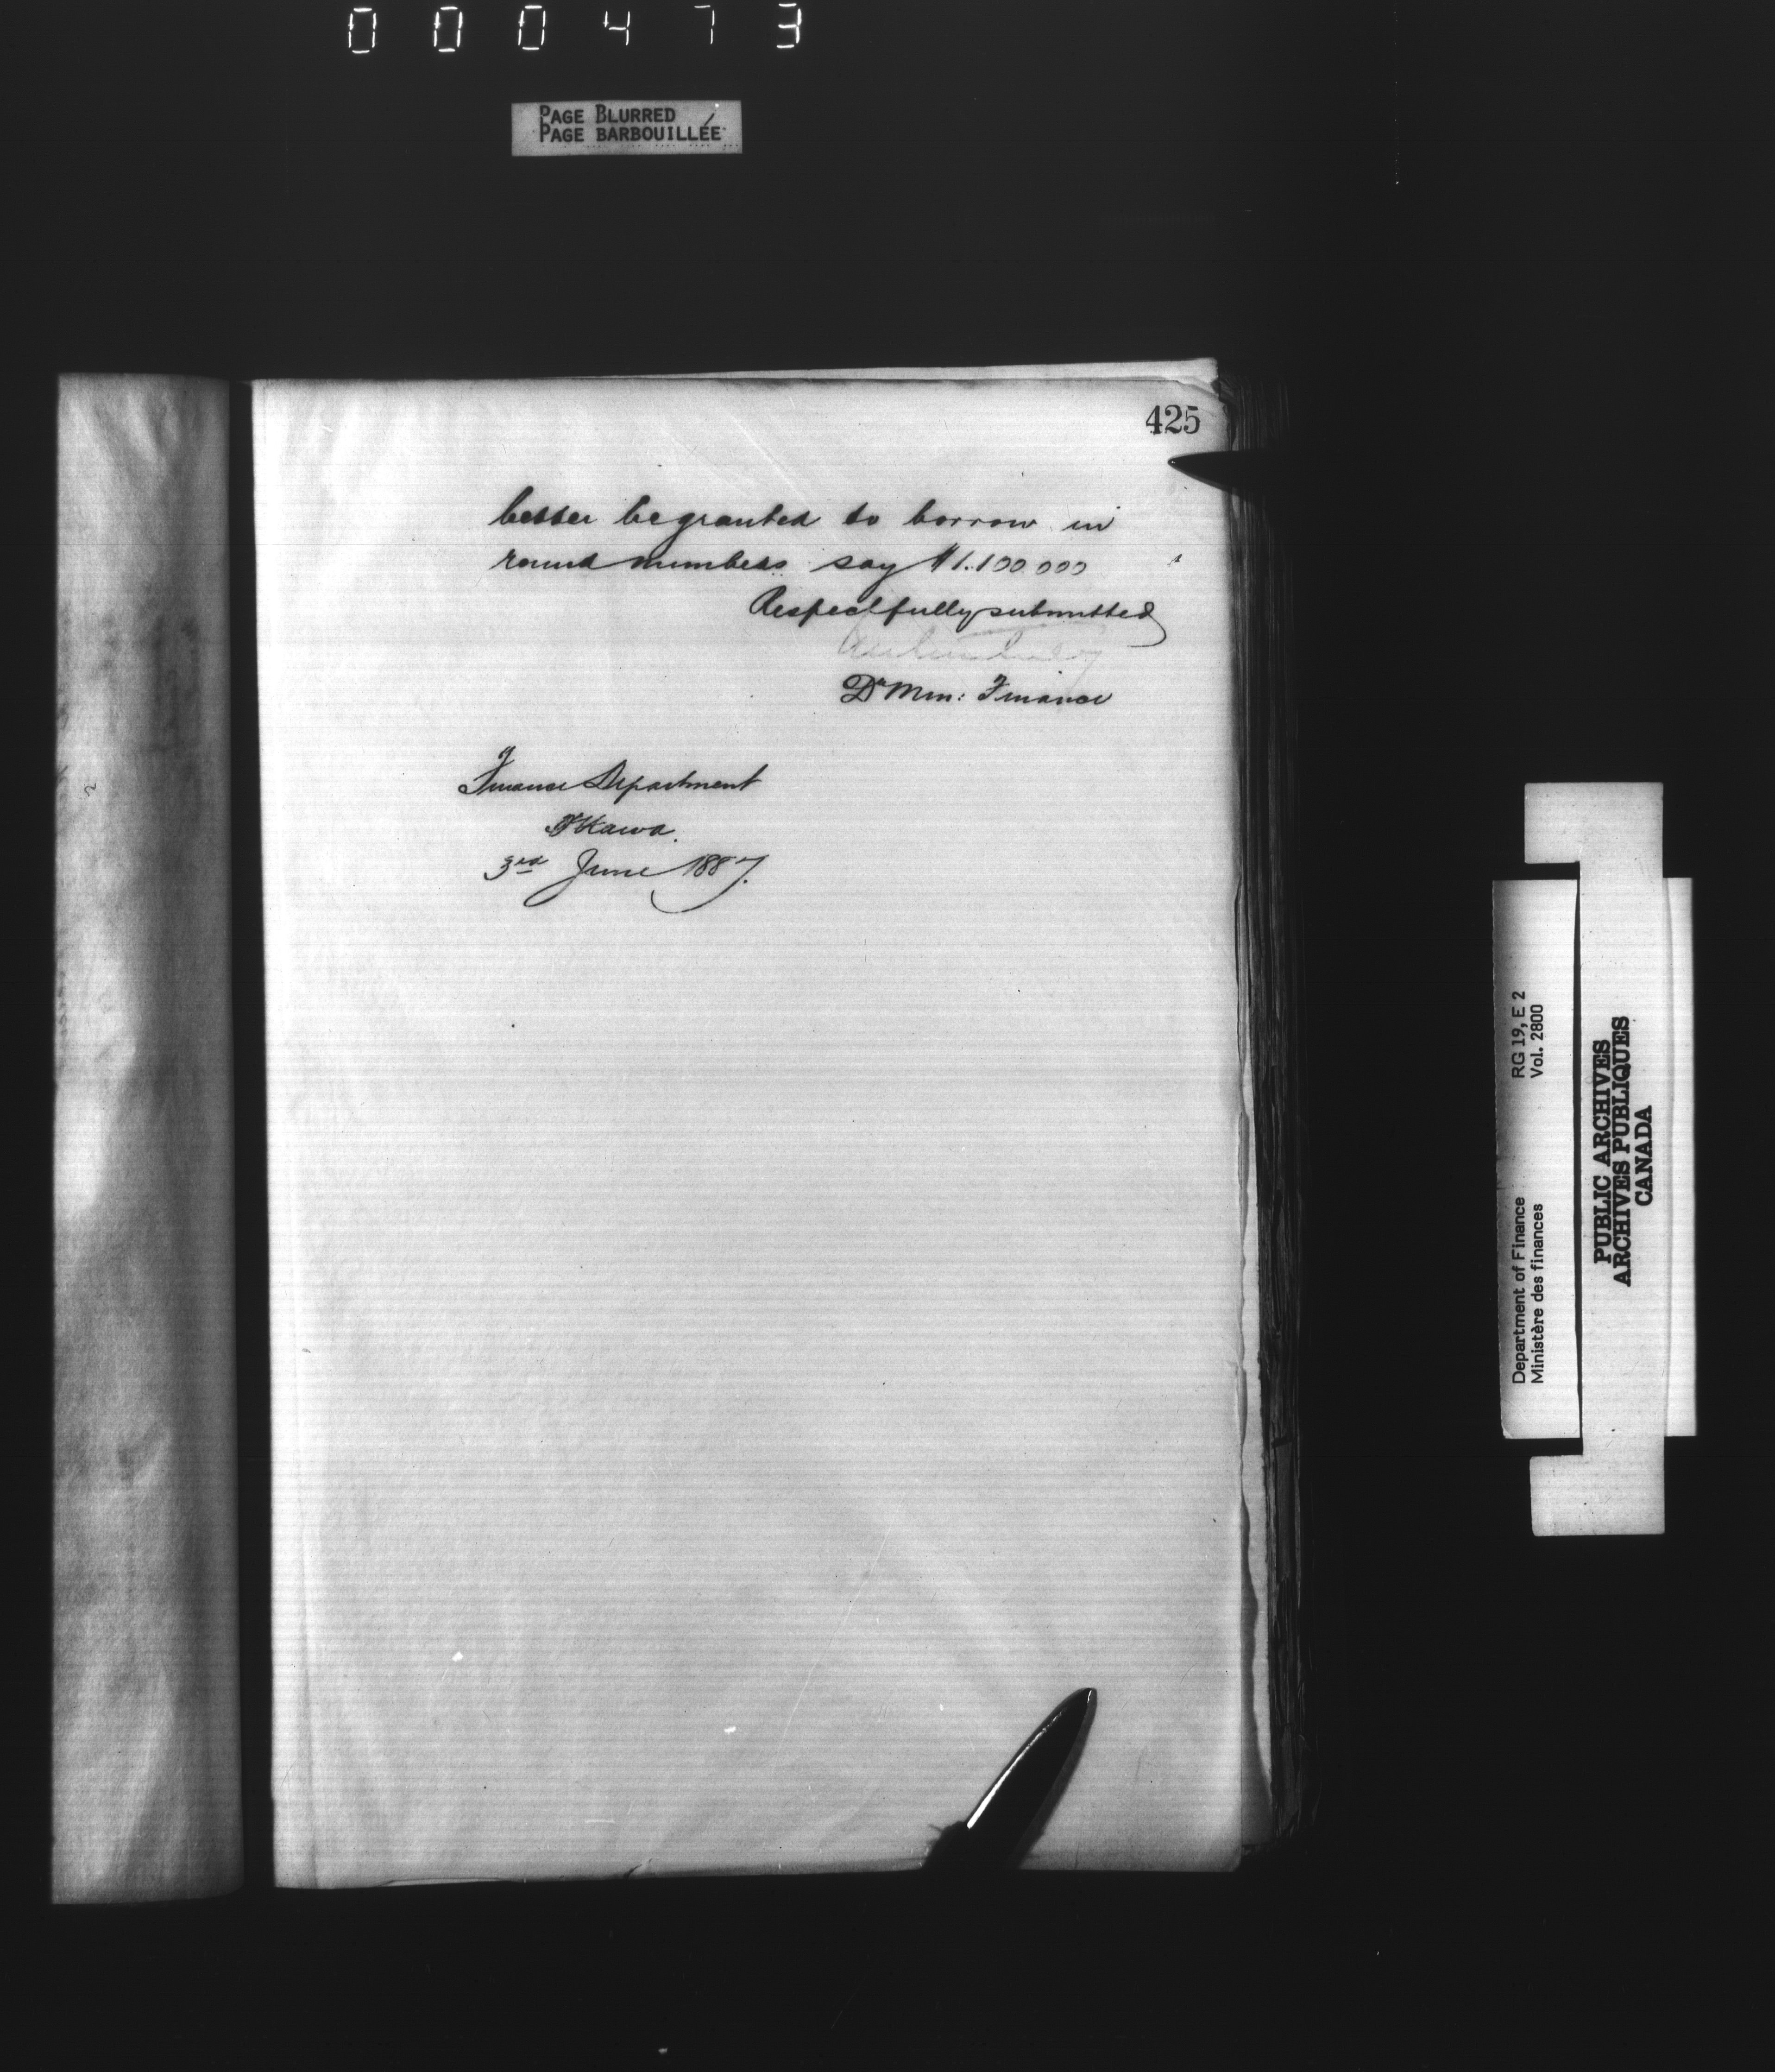 000473
PAGE BLURRED
PAGE BARBOUILLÉE
425
better be granted to borrow in
round numbers say $1.100.000
Respectfully submitted
Dy Min: Finance
Finance Department
Ottawa.
3rd June 1887.
Department of Finance RG 19, E 2
Ministère des finances Vol. 2800
PUBLIC ARCHIVES
ARCHIVES PUBLIQUES
CANADA